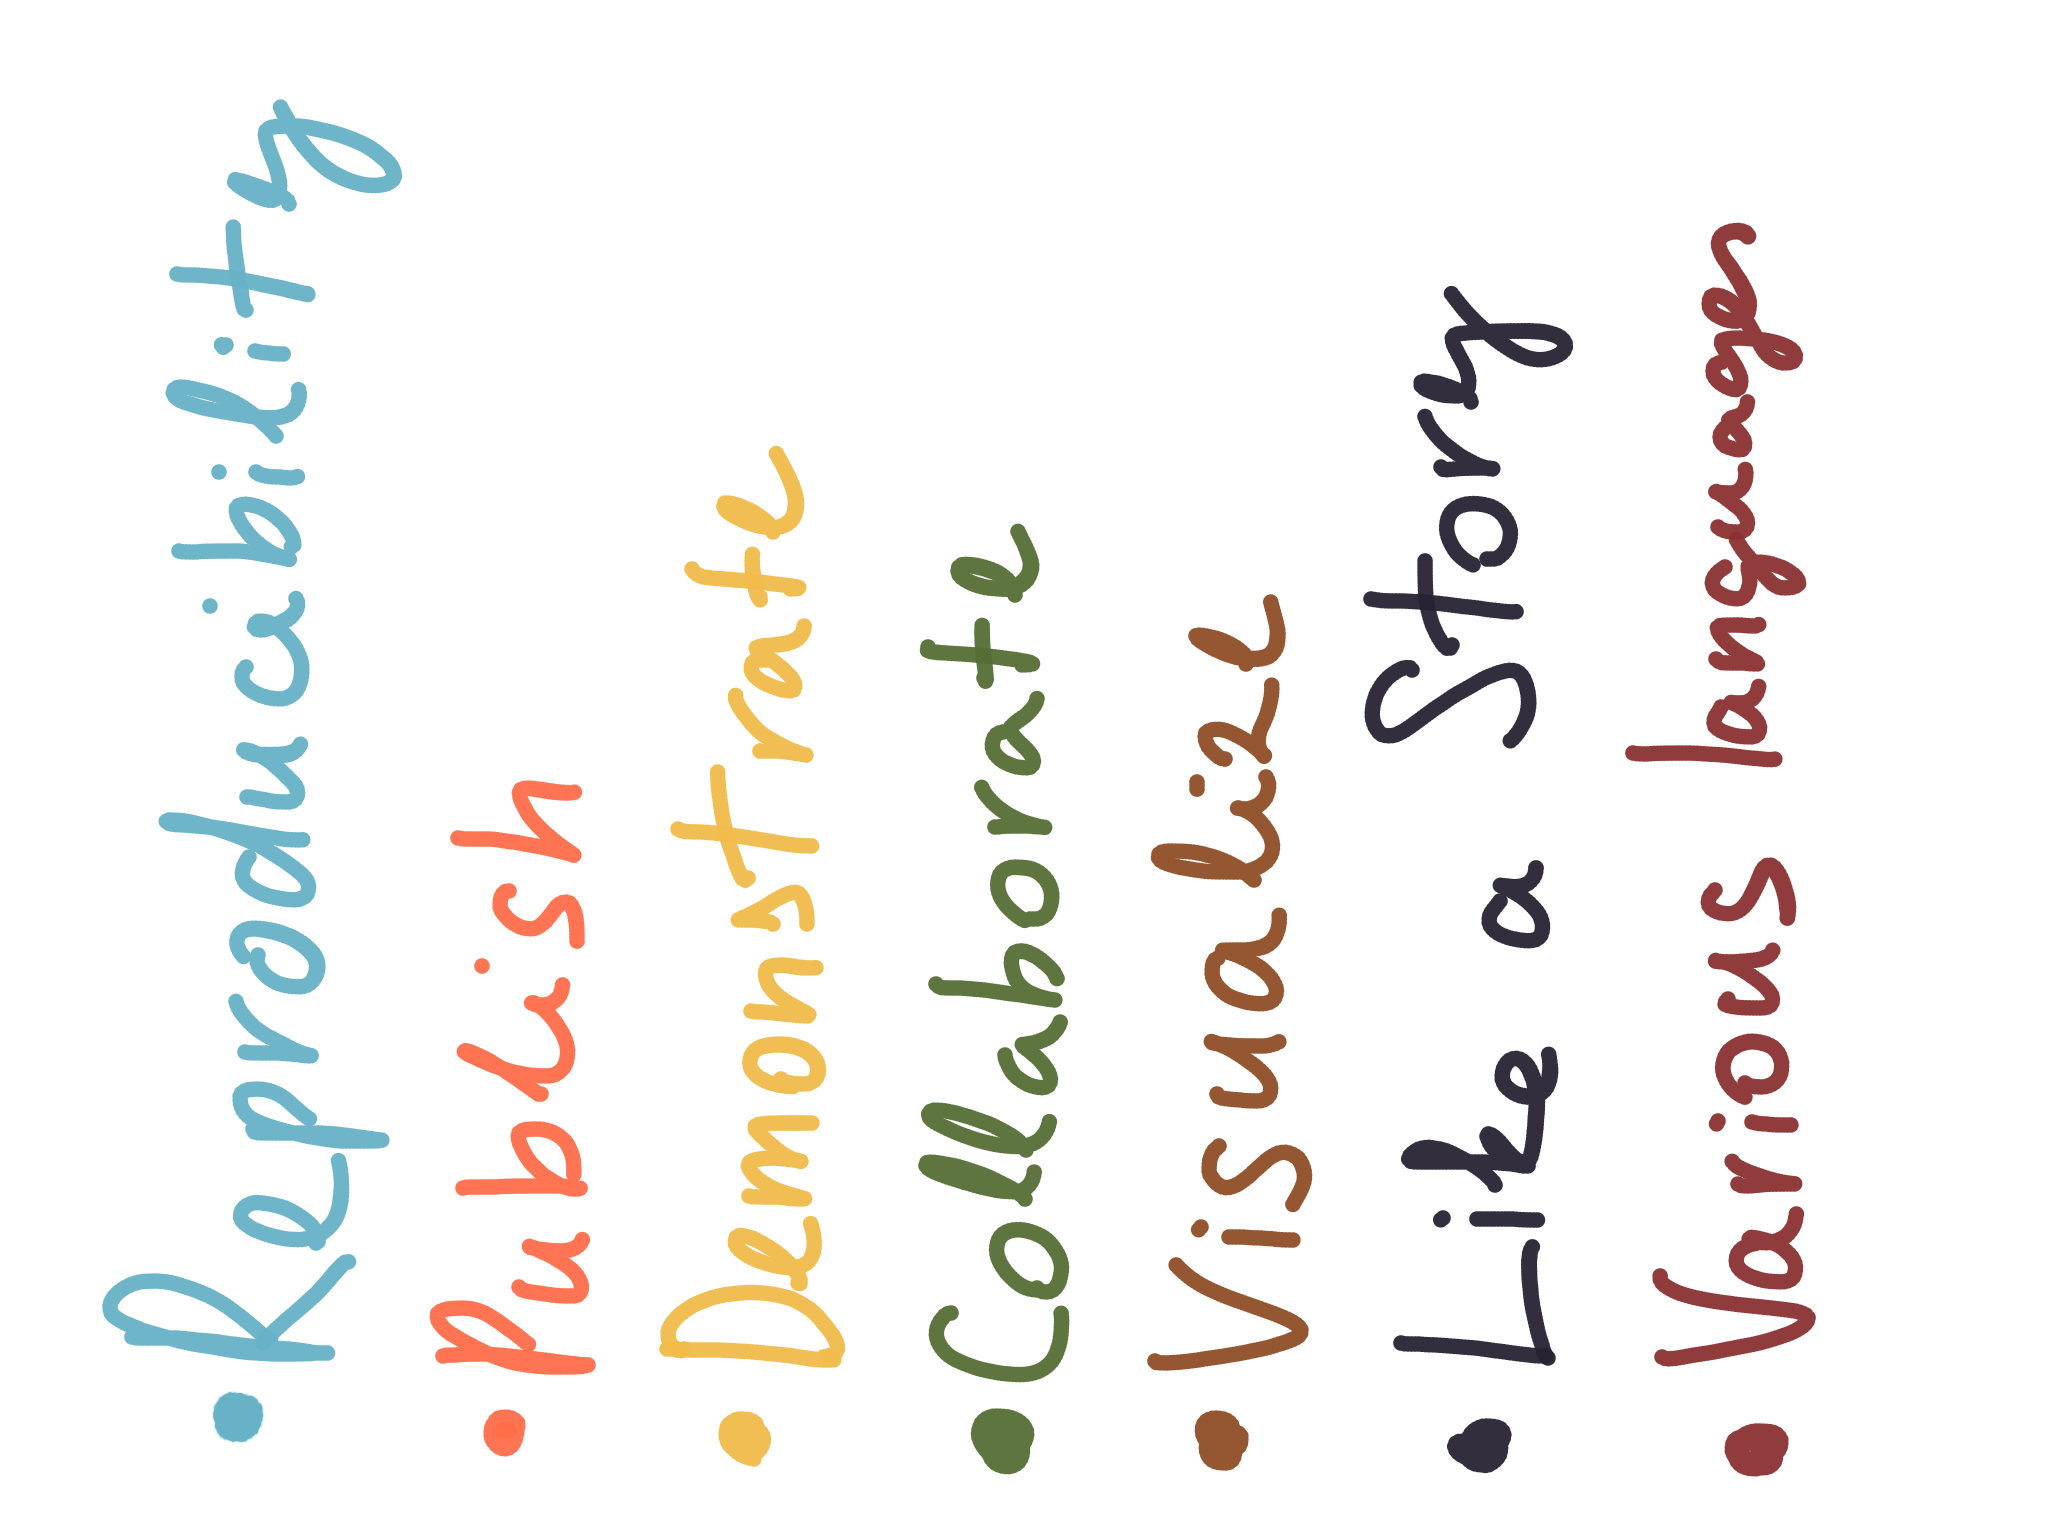 • Reproducibility
• Publish
• Demonstrate
• Collaborate
• Visualize
• Like a Story
• Various languages